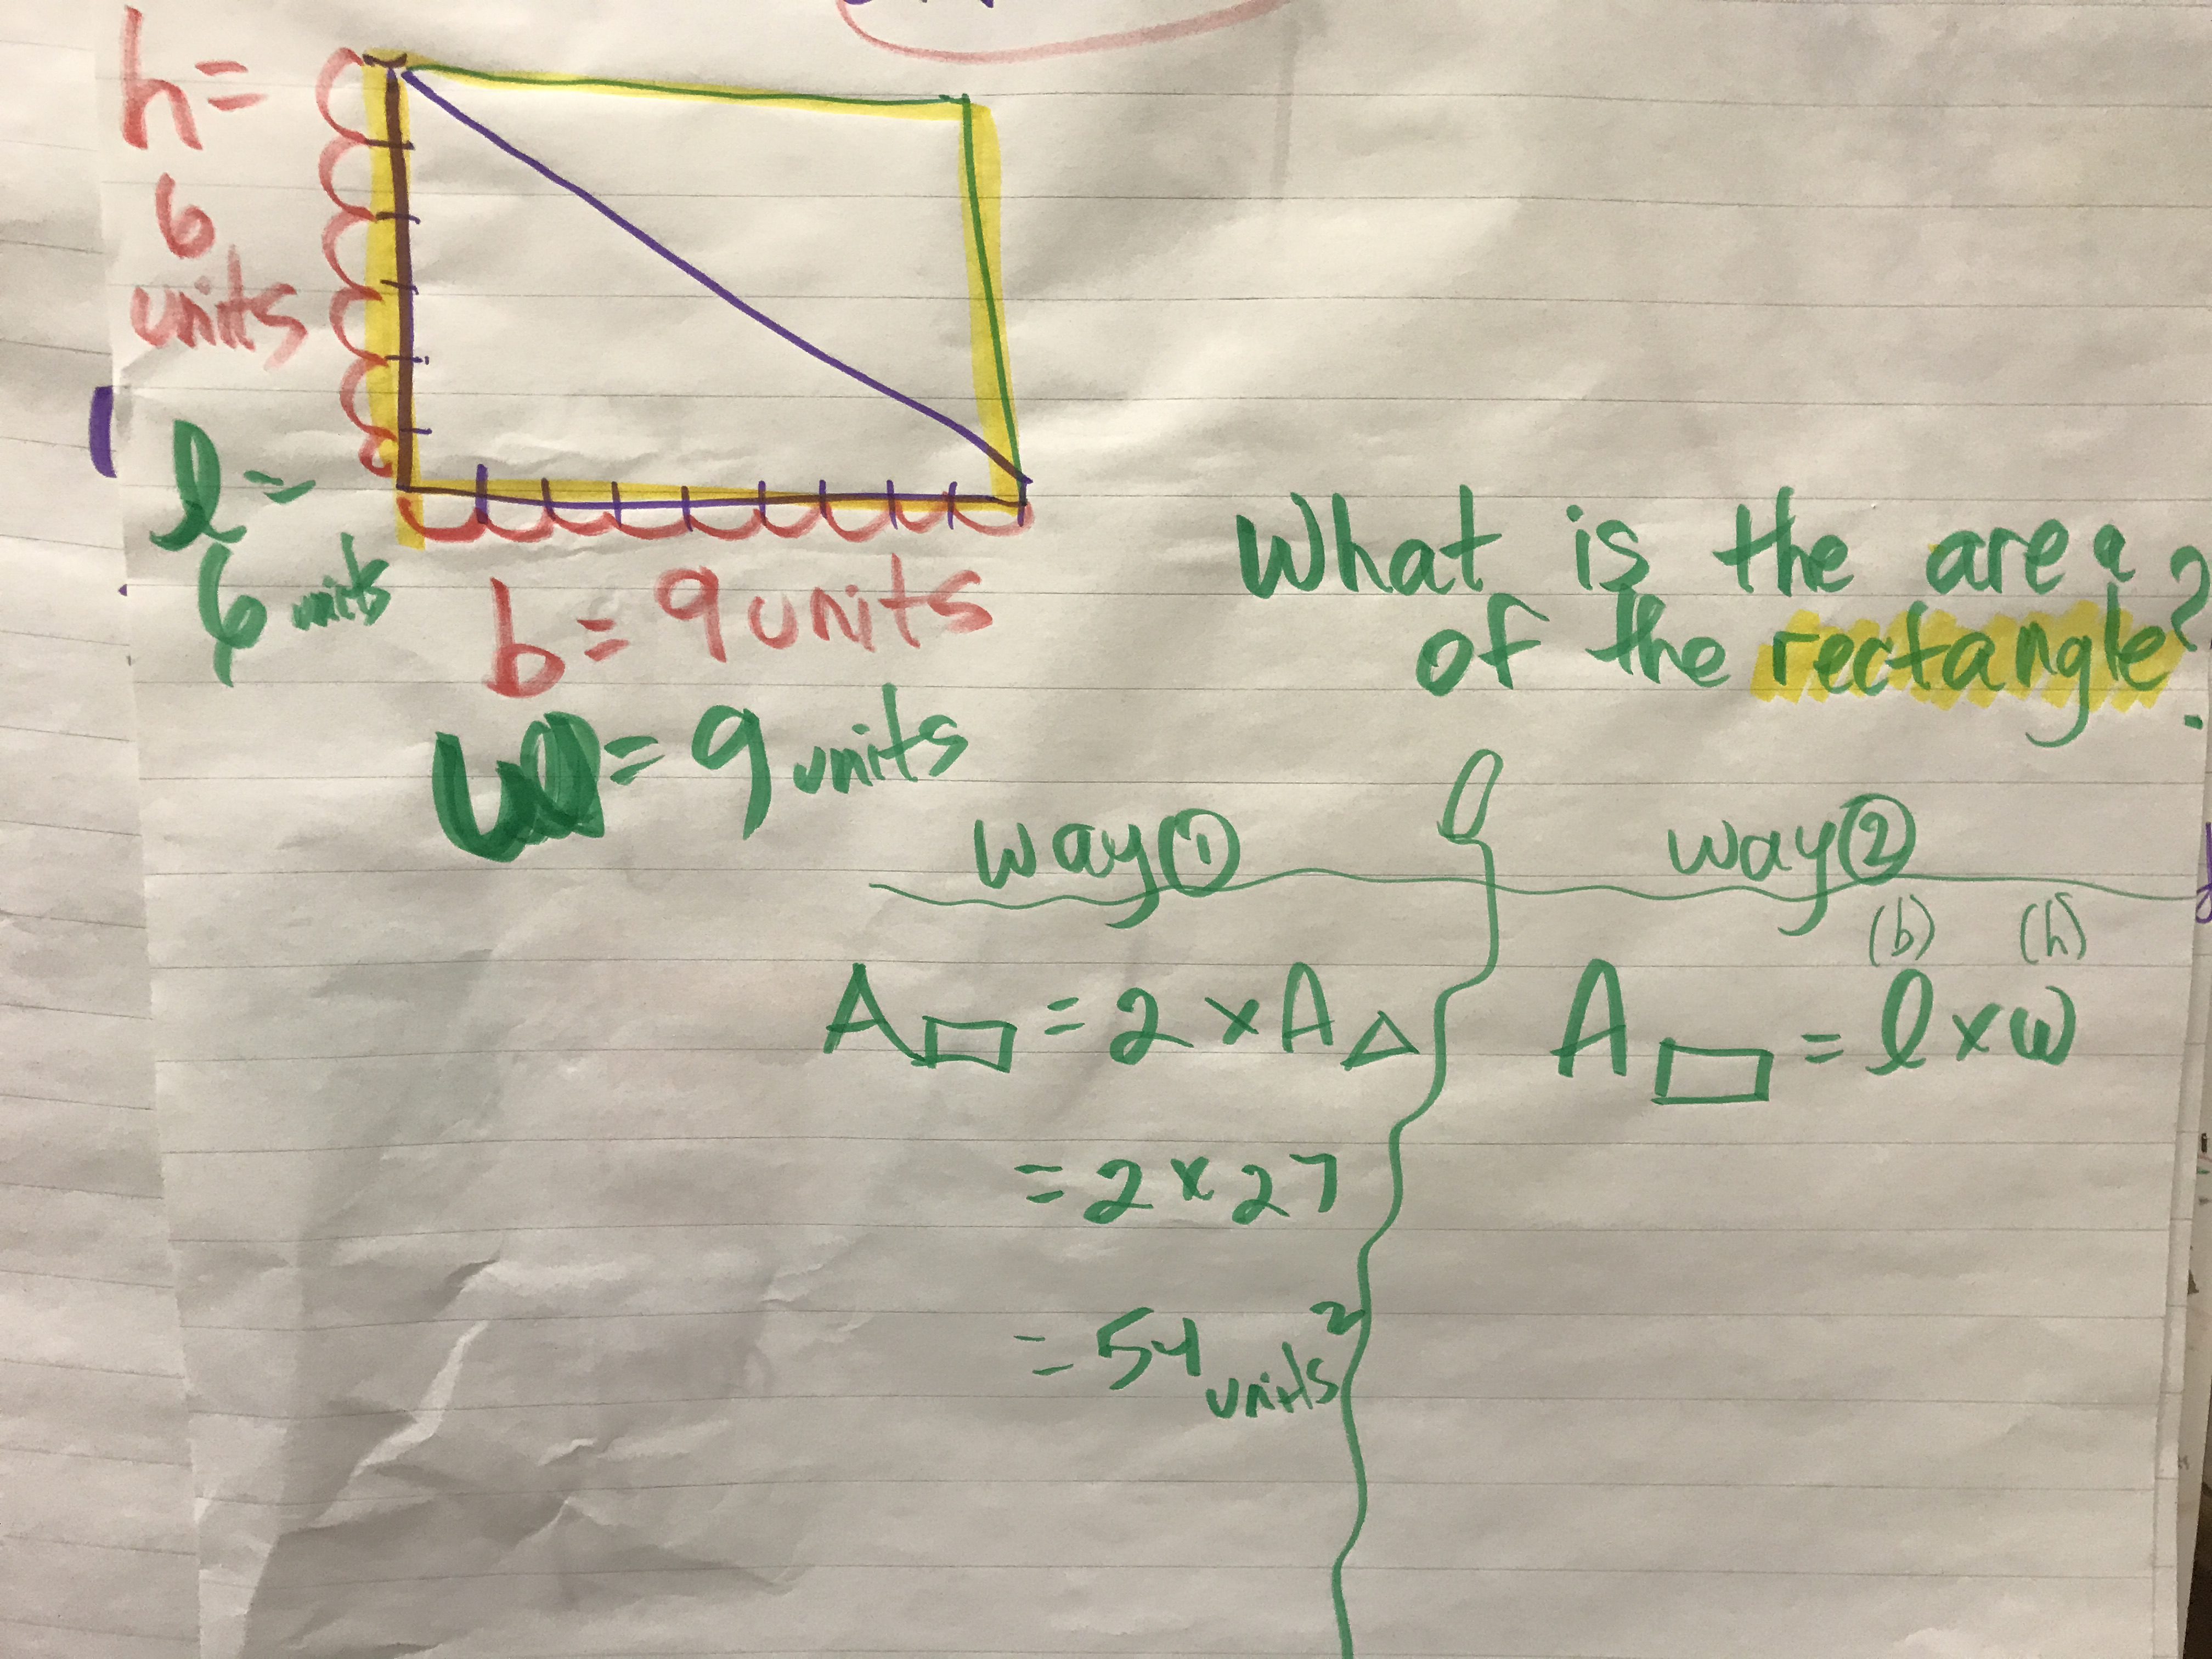 h=
6
units
l=
6 units
b= 9 units
w= 9 units
What is the area
of the rectangle?
way ①
A▭ = 2 × A△
= 2 × 27
= 54 units²
way ②
(b) (h)
A▭ = l × w